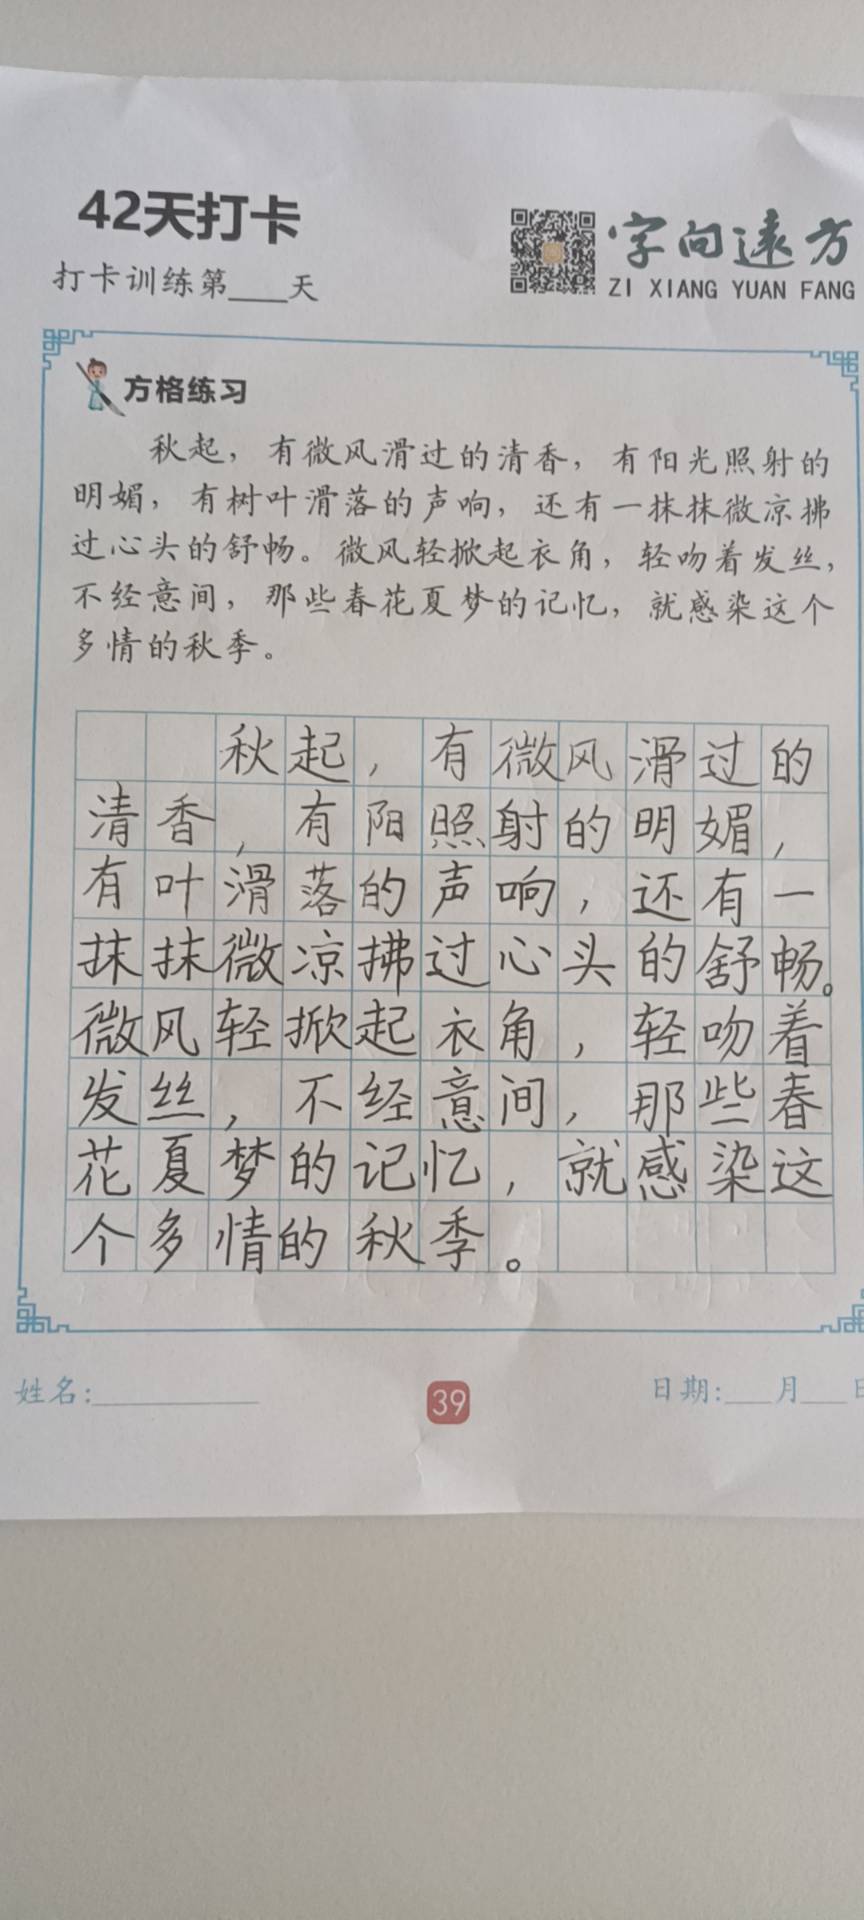 42天打卡
打卡训练第____天
字向远方
ZI XIANG YUAN FANG
方格练习
秋起，有微风滑过的清香，有阳光照射的
明媚，有树叶滑落的声响，还有一抹抹微凉拂
过心头的舒畅。微风轻掀起衣角，轻吻着发丝，
不经意间，那些春花夏梦的记忆，就感染这个
多情的秋季。
秋起，有微风滑过的
清香，有阳照射的明媚，
有叶滑落的声响，还有一
抹抹微凉拂过心头的舒畅。
微风轻掀起衣角，轻吻着
发丝，不经意间，那些春
花夏梦的记忆，就感染这
个多情的秋季。
姓名:____________
39
日期:___月___日